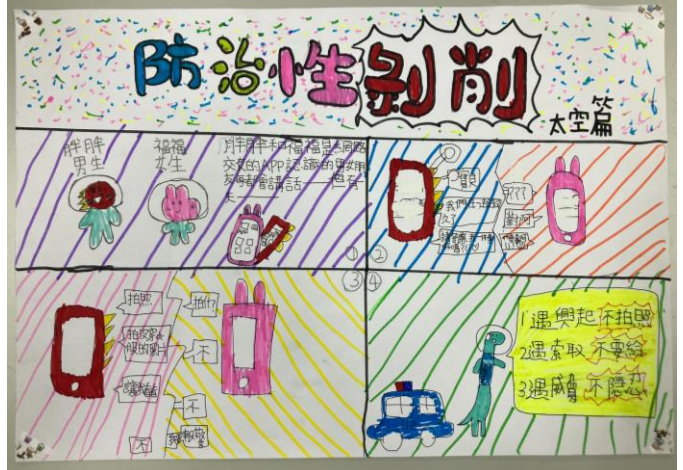 防治性剝削
太空篇
胖胖
男生
福福
女生
胖胖和福福是在網路
交友的APP認識的男女朋
友每天都會講話——但有一
天——
①
②
寶貝
我們在一起這麼
久了
那???
對啊
③
④
拍照
拍什?
不
不
不
1遇興起 不拍照
2遇索取 不要給
3遇威脅 不隱忍